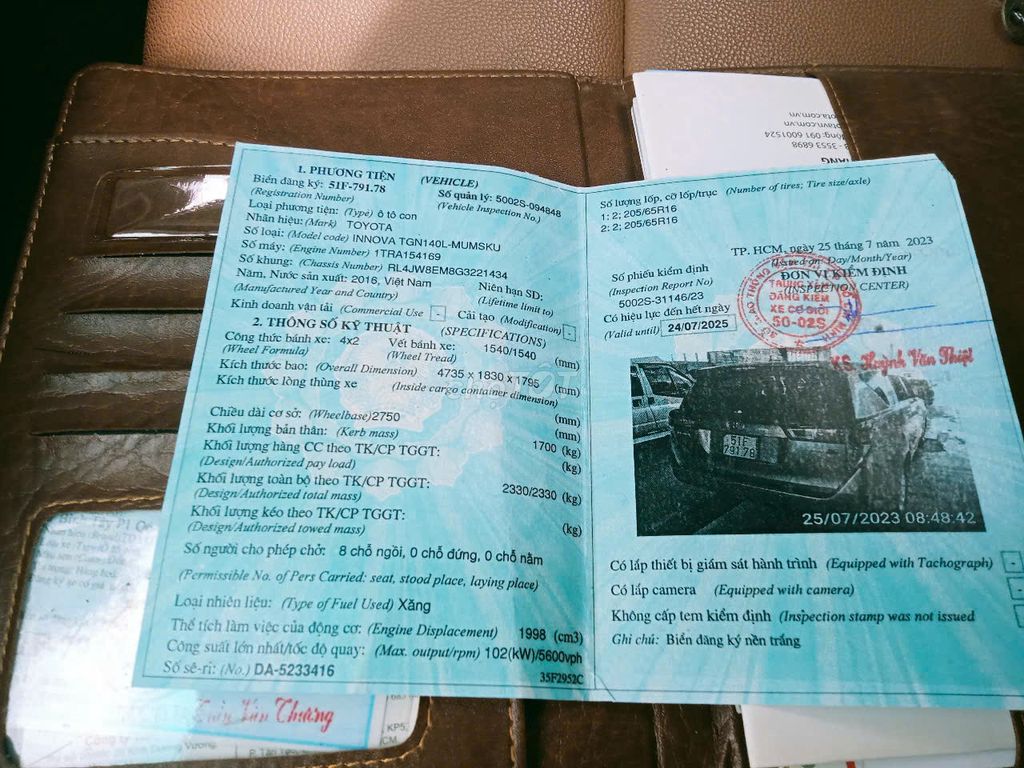 1. PHƯƠNG TIỆN (VEHICLE)
Biển đăng ký: 51F-791.78 Số quản lý: 5002S-094848
(Registration Number) (Vehicle Inspection No.)
Loại phương tiện: (Type) ô tô con
Nhãn hiệu: (Mark) TOYOTA
Số loại: (Model code) INNOVA TGN140L-MUMSKU
Số máy: (Engine Number) 1TRA154169
Số khung: (Chassis Number) RL4JW8EM8G3221434
Năm, Nước sản xuất: 2016, Việt Nam Niên hạn SD:
(Manufactured Year and Country) (Lifetime limit to)
Kinh doanh vận tải (Commercial Use) - Cải tạo (Modification) -
2. THÔNG SỐ KỸ THUẬT (SPECIFICATIONS)
Công thức bánh xe: 4x2 Vết bánh xe: 1540/1540 (mm)
(Wheel Formula) (Wheel Tread)
Kích thước bao: (Overall Dimension) 4735 x 1830 x 1795 (mm)
Kích thước lòng thùng xe (Inside cargo container dimension)
(mm)
Chiều dài cơ sở: (Wheelbase) 2750 (mm)
Khối lượng bản thân: (Kerb mass) 1700 (kg)
Khối lượng hàng CC theo TK/CP TGGT: (kg)
(Design/Authorized pay load)
Khối lượng toàn bộ theo TK/CP TGGT: 2330/2330 (kg)
(Design/Authorized total mass)
Khối lượng kéo theo TK/CP TGGT: (kg)
(Design/Authorized towed mass)
Số người cho phép chở: 8 chỗ ngồi, 0 chỗ đứng, 0 chỗ nằm
(Permissible No. of Pers Carried: seat, stood place, laying place)
Loại nhiên liệu: (Type of Fuel Used) Xăng
Thể tích làm việc của động cơ: (Engine Displacement) 1998 (cm3)
Công suất lớn nhất/tốc độ quay: (Max. output/rpm) 102(kW)/5600vph
Số sê-ri: (No.) DA-5233416 35F2952C
Số lượng lốp, cỡ lốp/trục (Number of tires; Tire size/axle)
1: 2; 205/65R16
2: 2; 205/65R16
TP. HCM, ngày 25 tháng 7 năm 2023
(Issued on: Day/Month/Year)
Số phiếu kiểm định ĐƠN VỊ KIỂM ĐỊNH
(Inspection Report No) (INSPECTION CENTER)
5002S-31146/23
Có hiệu lực đến hết ngày
(Valid until) 24/07/2025
TRUNG TÂM
ĐĂNG KIỂM
XE CƠ GIỚI
50-02S
KS. Huỳnh Văn Thiệt
51F
791.78
25/07/2023 08:48:42
Có lắp thiết bị giám sát hành trình (Equipped with Tachograph) -
Có lắp camera (Equipped with camera) -
Không cấp tem kiểm định (Inspection stamp was not issued
Ghi chú: Biển đăng ký nền trắng
ota.com.vn
otavn.com.vn
động: 091 6001524
- 3553 6898
Văn Thương